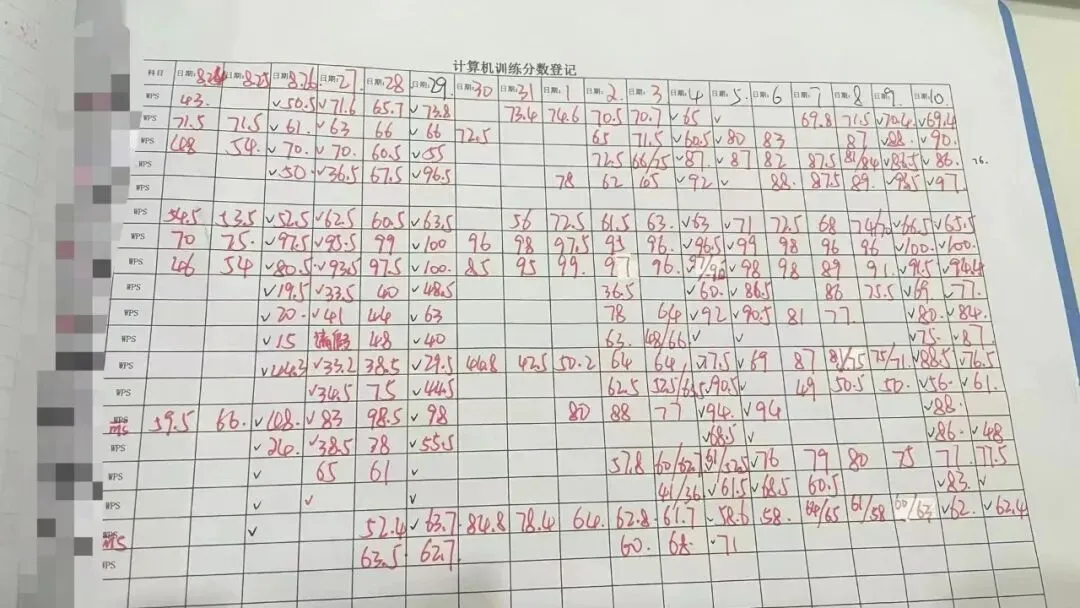 计算机训练分数登记
科目 日期:8.24 日期:8.25 日期:8.26 日期:27 日期:28 日期:29 日期:30 日期:31 日期:1 日期:2 日期:3 日期:4 日期:5 日期:6 日期:7 日期:8 日期:9 日期:10
WPS 43. √50.5 √71.6 65.7 √73.8 73.4 74.6 70.5 70.7 √65 √ 69.8 71.5 √70.4 √69.4
71.5 71.5 √61. √63 66 √66 72.5 65 71.5 √60.5 √80 83 87 √88. √90.
WPS 54. √70. √70. 60.5 √55 72.5 66/75 √87. √87 82 87.5 81/84 √86.5 √86. 76.
WPS √50 √36.5 67.5 √96.5 78 62 65 √92 √ 88. 87.5 89. √97.
WPS
WPS 54.5 √52.5 √62.5 60.5 √63.5 56 72.5 61.5 63. √63 √71 72.5 68 74/70 √66.5 √65.5
WPS 70 75. √97.5 √95.5 99 √100 96 98 97.5 95 96. √96.5 √99 98 96 96 √100. √100.
WPS 46 54 √80.5 √93.5 97.5 √100. 85 95 99. 97 96. √98 98 89 91. √91.5 √94.4
WPS √19.5 √33.5 40 √48.5 36.5 √60. √86.5 86 75.5 √69. √77.
WPS √20. √41 44 √63 78 64 √92 √90.5 81 77. √80. √84.
WPS √15 48 √40 63. 48/66 √ √ √75. √87
WPS √44.3 √33.2 38.5 √29.5 44.8 42.5 50.2 64 64 √77.5 √69 87 75/71. √88.5 √76.5
WPS √34.5 75 √44.5 62.5 √90.5 49 50.5 50. √56. √61.
ms 59.5 66. √83 98.5 √98 80 88 77 √94. √94 √88.
WPS √24. √38.5 38 √55.5 √68.5 √ √86. √48
WPS √ 65 61 √ 57.8 60/62.7 √76 79 80 75 77. 77.5
WPS √ √ √ 41/36 √61.5 √68.5 60.5 √83. √
ms √ 52.4 √63.7 84.8 78.4 64. 62.8 61.7 √58.6 58. 64/65 61/58 60/63 √62. √62.4
WPS 63.5 62.7 60. 68. √71